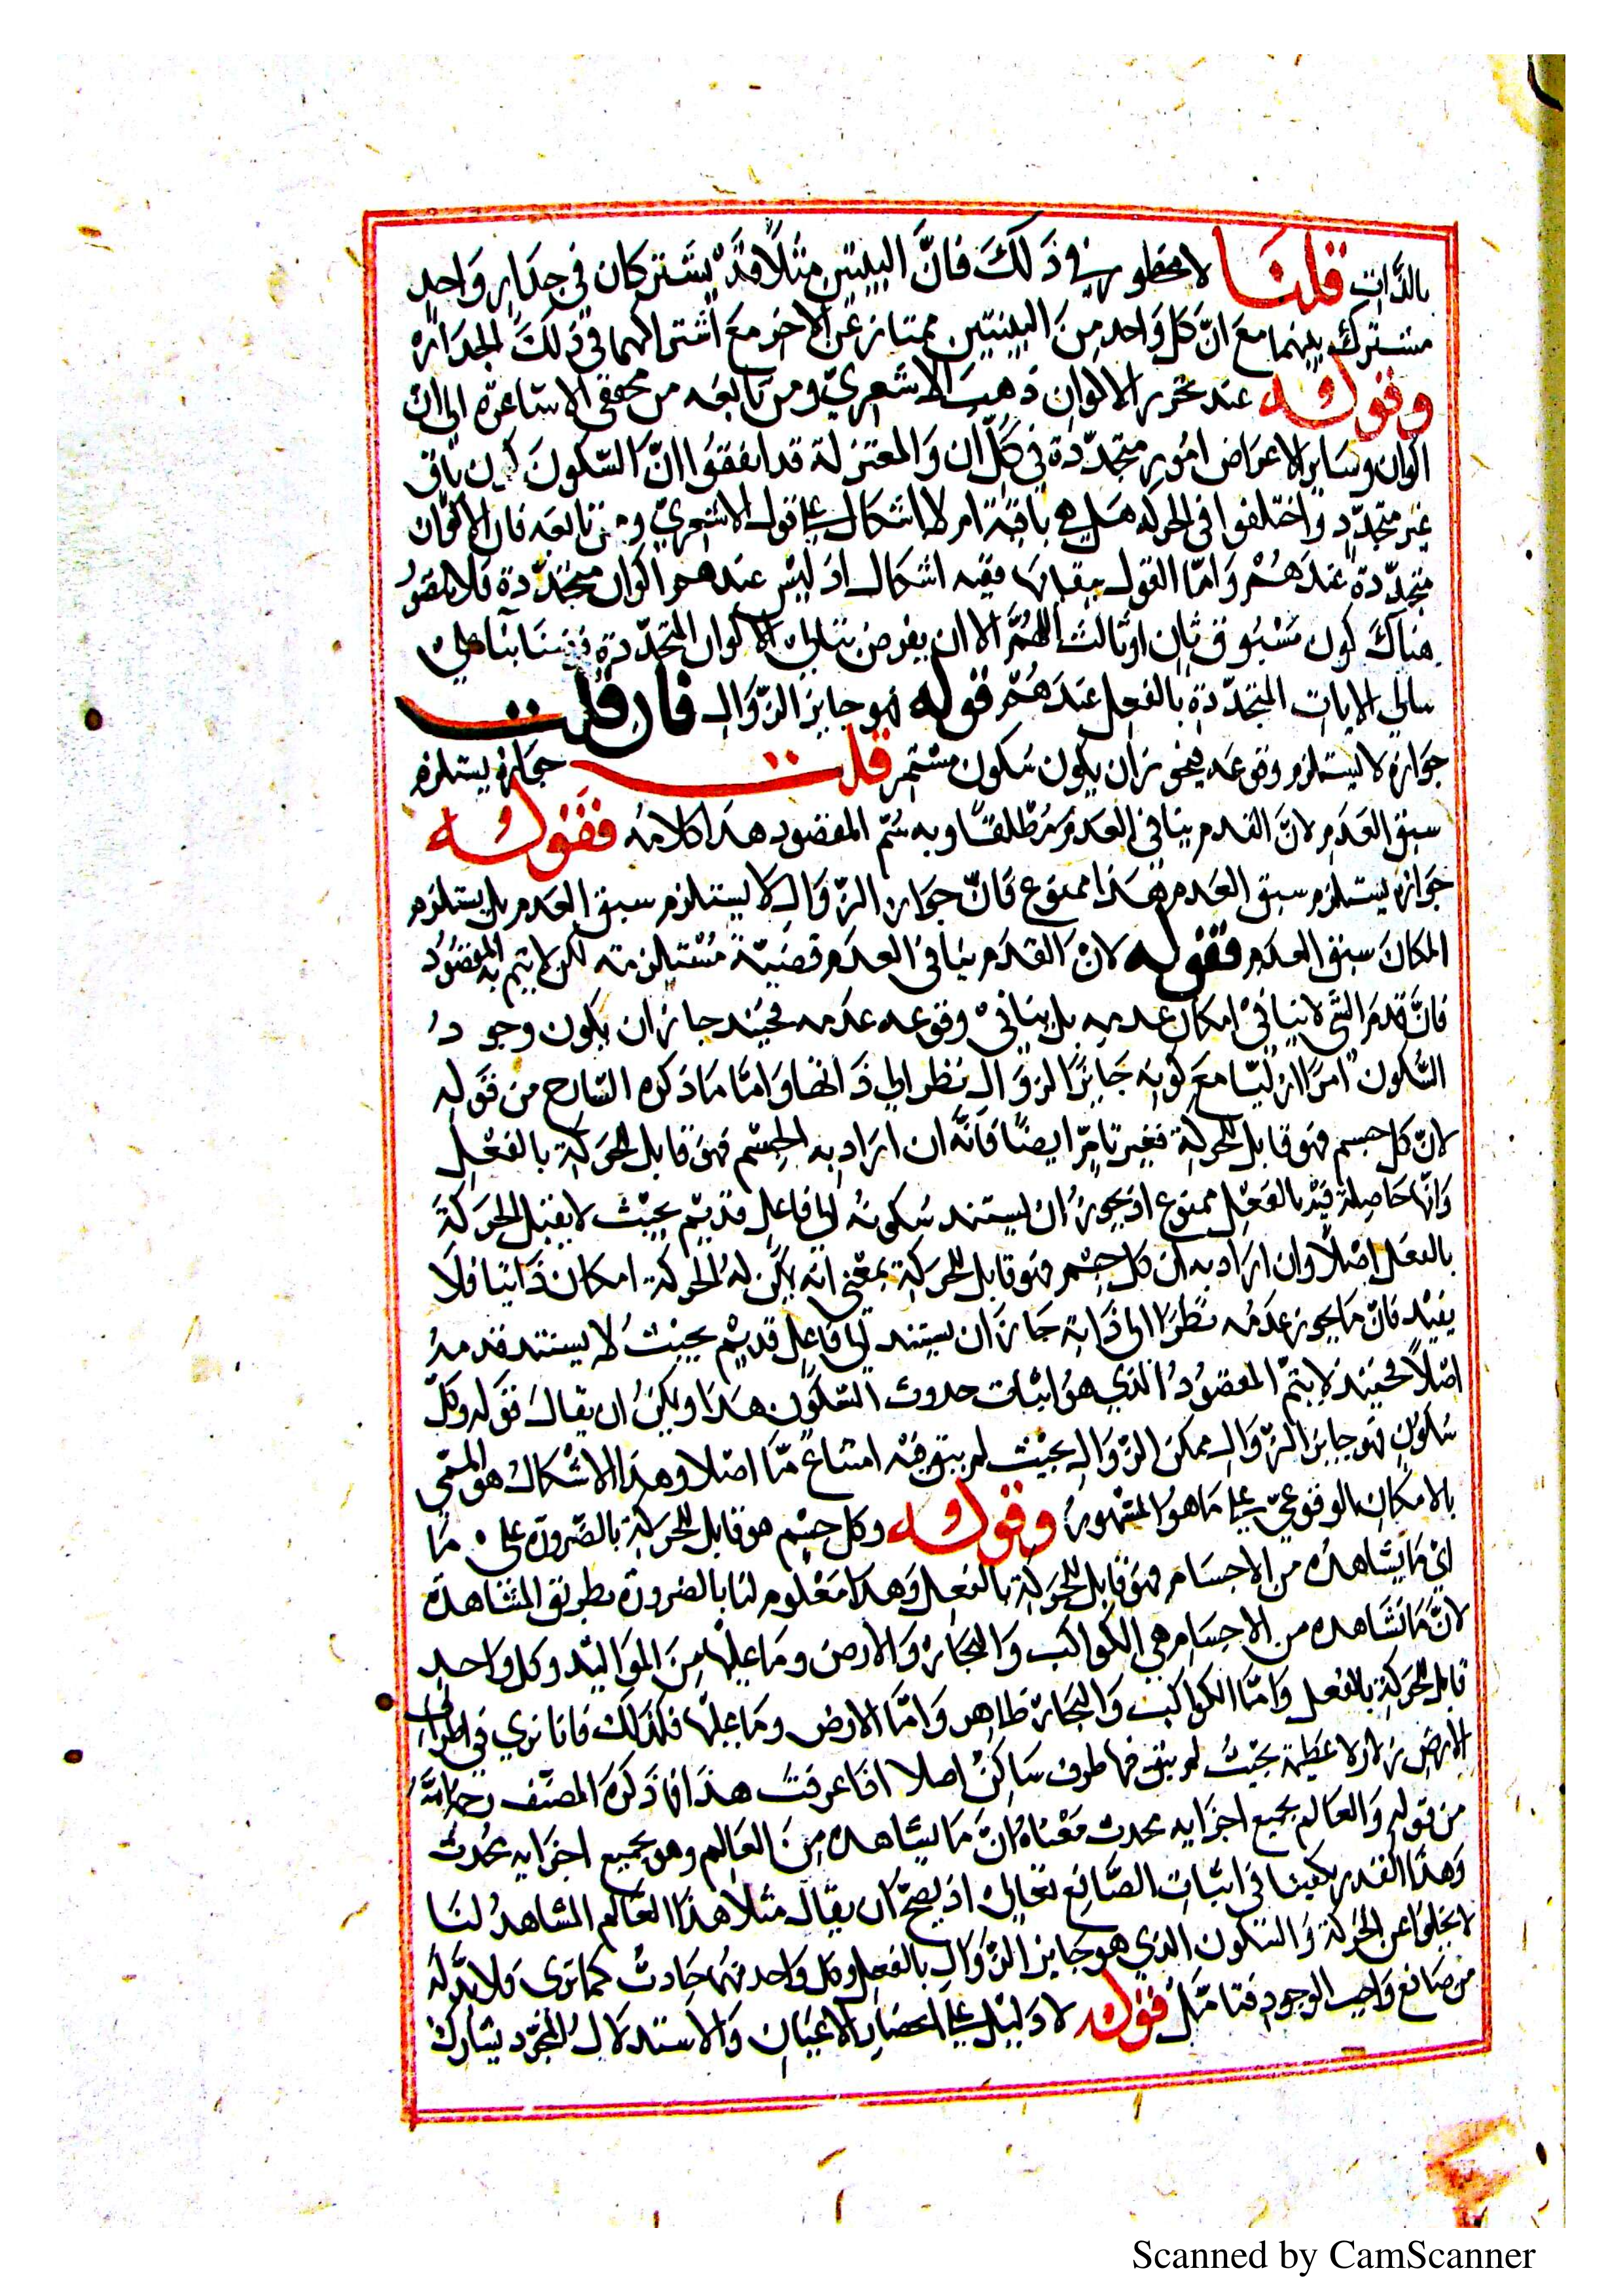 بالذات قلنا لا محظور في ذلك فانّ البيتين مثلًا قد يشتركان في جدار واحد
مشترك بينهما مع انّ كل واحد من البيتين ممتاز عن الاخر مع اشتراكهما في ذلك الجدار
وقوله عند تحرير الالوان ذهب الاشعري ومن تابعه من محققي الاشاعرة الي ان
اكوان وساير الاعراض امور متجدّدة في كلّ ان والمعتزلة قد اتفقوا انّ السّكون كون باق
غير متجدّد واختلفوا في الحركة هل هي باقية ام لا اشكال علي قول الاشعري ومن تابعه فان الاكوان
متجدّدة عندهم وامّا القول ببقايها ففيه اشكال اذ ليس عندهم اكوان متجدّدة فلا يتصوّر
هناك كون مسبوق ثان او ثالث اللهمّ الا ان يفرض تتالي الاكوان المتجدّدة علي
تتالي الانات المتجدّدة بالفعل عندهم قوله فهو جايز الزّوال فان قلت
جوازه لا يستلزم وقوعه فيجوز ان يكون سكون مستمر قلت جوازه يستلزم
سبق العدم لانّ القدم ينافي العدم مطلقًا وبه يتم المقصود هذا كلامه فقوله
جوازه يستلزم سبق العدم هذا ممنوع فانّ جواز الزّوال لا يستلزم سبق العدم بل يستلزم
امكان سبق العدم فقوله لانّ القدم ينافي العدم قضيّة لكن لا يتم به المقصود
فانّ قدم الشي لا ينافي امكان عدمه بل ينافي وقوع عدمه فحينئذ جاز ان يكون وجود
السّكون امرًا ازليّا مع كونه جايز الزوال نظر الي ذاتها وامّا ما ذكره الشارح من قوله
لانّ كل جسم فهو قابل للحركة فغير تامّ ايضًا فانّه ان اراد به الجسم فهو قابل للحركة بالفعل
وانّها حاصلة فيه بالفعل ممنوع اذ يجوز ان يستند سكونه الي فاعل قديم بحيث لا يقبل الحركة
بالفعل اصلًا وان اراد به ان كل جسم فهو قابل للحركة بمعني انه يمكن له الحركة امكان ذاتيا فلا
يفيد فانّ ما يجوز عدمه نظرًا الي ذاته جاز ان يستند الي فاعل قديم بحيث لا يستند قدمه
اصلًا فحينئذ لا يتمّ المقصود الذي هو اثبات حدوث السّكون هذا ويمكن ان يقال قوله وكلّ
سكون فهو جايز الزّوال ممكن الزّوال بحيث لم يبق فيه امتناع مّا اصلا وهذا الاشكال هو المسمّي
بالامكان الوقوعيّ علي ما هو المشهور وقوله وكل جسم هو قابل للحركة بالضّرورة علي ما
اي ما يشاهده من الاجسام فهو قابل للحركة بالفعل وهذا معلوم لنا بالضرورة بطريق المشاهدة
لانّ ما نشاهده من الاجسام هي الكواكب والبحار والارض وما عليها من المواليد وكل واحد
قابل للحركة بالفعل وامّا الكواكب والبحار ظاهر وامّا الارض وما عليها فلذلك فانا نري في اطراف
الارض زلازلا عظيمة بحيث لم يبق فيها طرف ساكن اصلا اذا عرفت هذا فما ذكره المصنّف رحمه اللّه
من قوله والعالم بجميع اجزايه محدث معناه انّ ما يشاهده من العالم وهو بجميع اجزايه محدث
وهذا القدر يكفينا في اثبات الصّانع تعالي اذ يصحّ ان يقال مثلا هذا العالم المشاهد لنا
لا يخلوا عن الحركة والسّكون الذي هو جايز الزّوال بالفعل وكل واحد منهما حادث كما تري فلا بدّ له
من صانع واجب الوجود فتامّل قوله لا دليل علي انحصار الاعيان والاستدلال المجرّد يشارك
Scanned by CamScanner